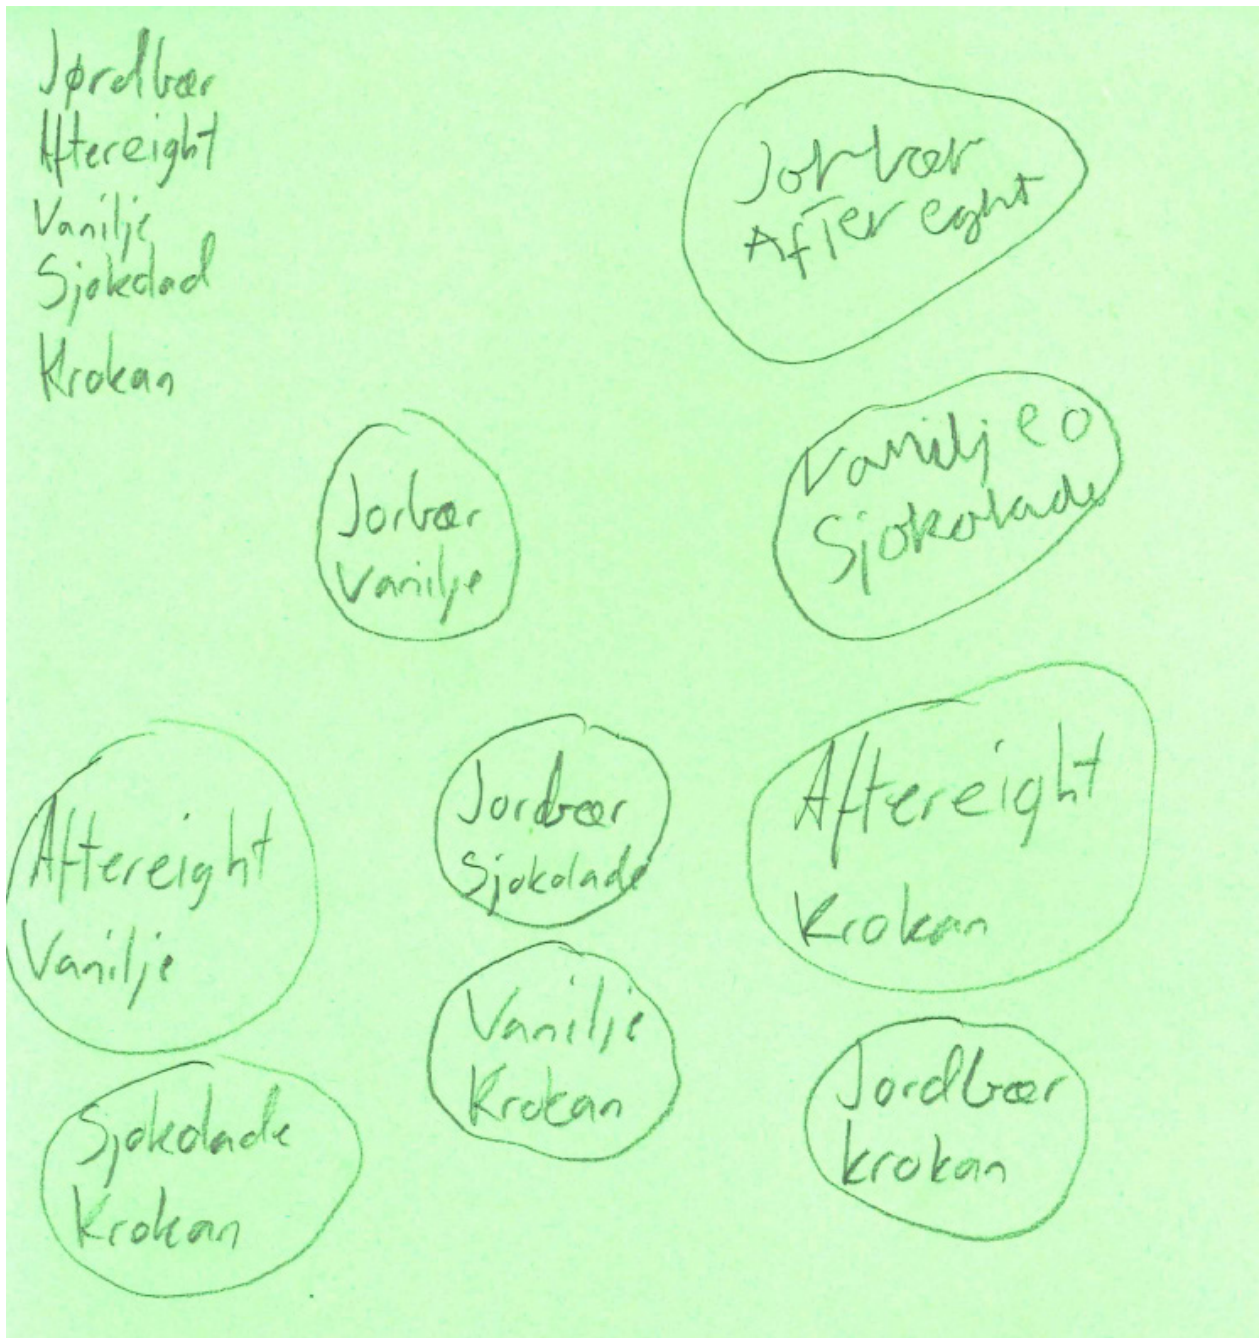 Jørdbær
Aftereight
Vanilje
Sjokolad
Krokan
Jorbær
After eght
Jorbær
Vanilje
Vanilje o
Sjokolade
Aftereight
Vanilje
Jordbær
Sjokolade
Aftereight
Krokan
Sjokolade
Krokan
Vanilje
Krokan
Jordbær
krokan